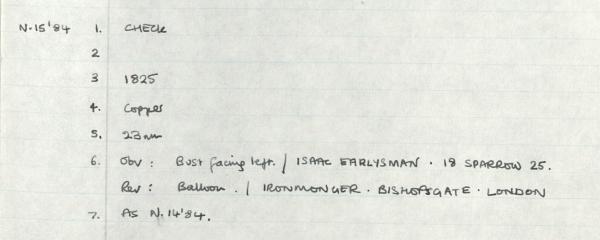 N.15'84 1. CHECK
2
3 1825
4. Copper
5. 23mm
6. Obv : Bust facing left. / ISAAC EARLYSMAN · 18 SPARROW 25.
Rev : Balloon . / IRONMONGER · BISHOPSGATE · LONDON
7. As N.14'84.